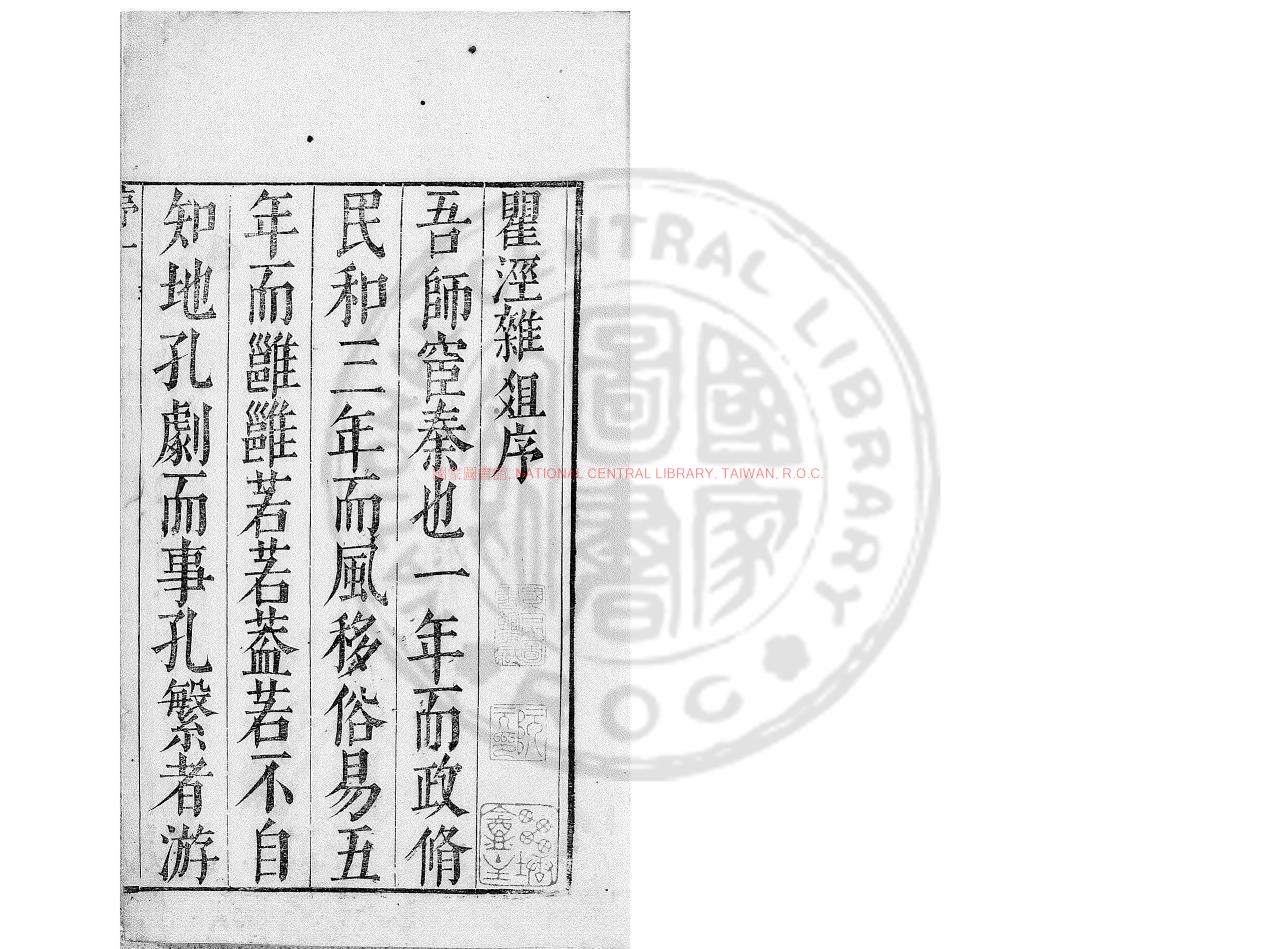 瞿涇雜爼序
吾師宦秦也一年而政脩
民和三年而風移俗易五
年而雝雝若若葢若不自
知地孔劇而事孔繁者游
國家圖書館, NATIONAL CENTRAL LIBRARY, TAIWAN, R.O.C.